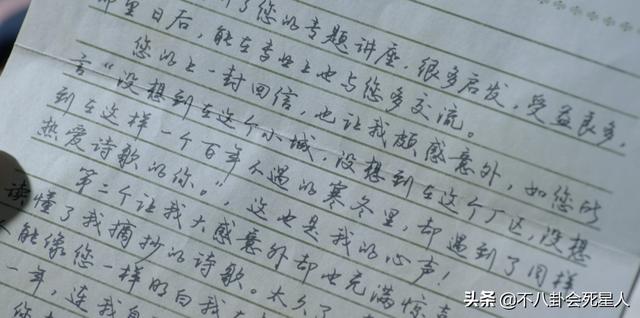 了您的专题讲座，很多启发，受益良多，
里日后，能在专业上也与您多交流。
您的上一封回信，也让我颇感意外，如您所
言“没想到在这个小城，没想到在这个厂区，没想
到在这样一个百年不遇的寒冬里，却遇到了同样
热爱诗歌的你。”，这也是我的心声！
第二个让我大感意外却也充满惊喜
读懂了我摘抄的诗歌。太久了
能像您一样明白我
一年，连我自
您
头条 @不八卦会死星人